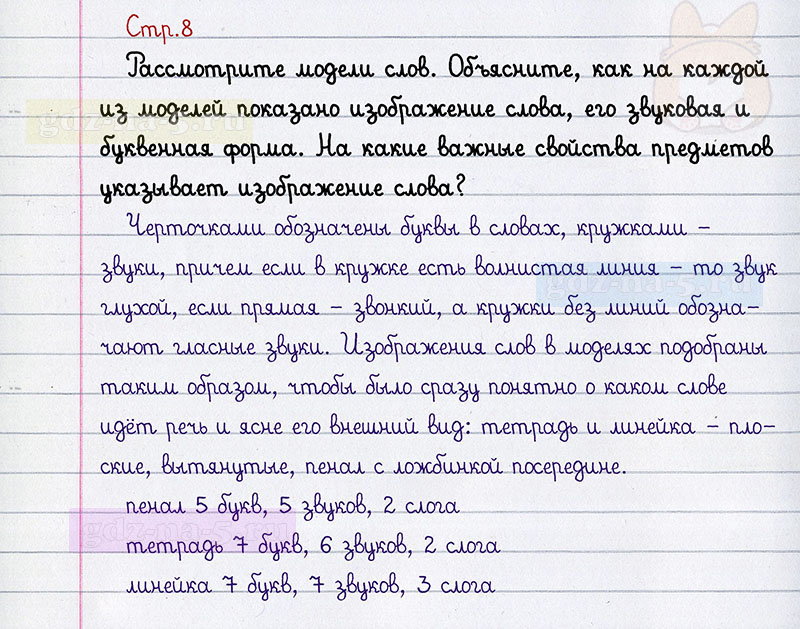 Стр.8
Рассмотрите модели слов. Объясните, как на каждой
из моделей показано изображение слова, его звуковая и
буквенная форма. На какие важные свойства предметов
указывает изображение слова?
Черточками обозначены буквы в словах, кружками –
звуки, причем если в кружке есть волнистая линия – то звук
глухой, если прямая – звонкий, а кружки без линий обозна-
чают гласные звуки. Изображения слов в моделях подобраны
таким образом, чтобы было сразу понятно о каком слове
идёт речь и ясне его внешний вид: тетрадь и линейка – пло-
ские, вытянутые, пенал с ложбинкой посередине.
пенал 5 букв, 5 звуков, 2 слога
тетрадь 7 букв, 6 звуков, 2 слога
линейка 7 букв, 7 звуков, 3 слога
gdz-na-5.ru
gdz-na-5.ru
gdz-na-5.ru